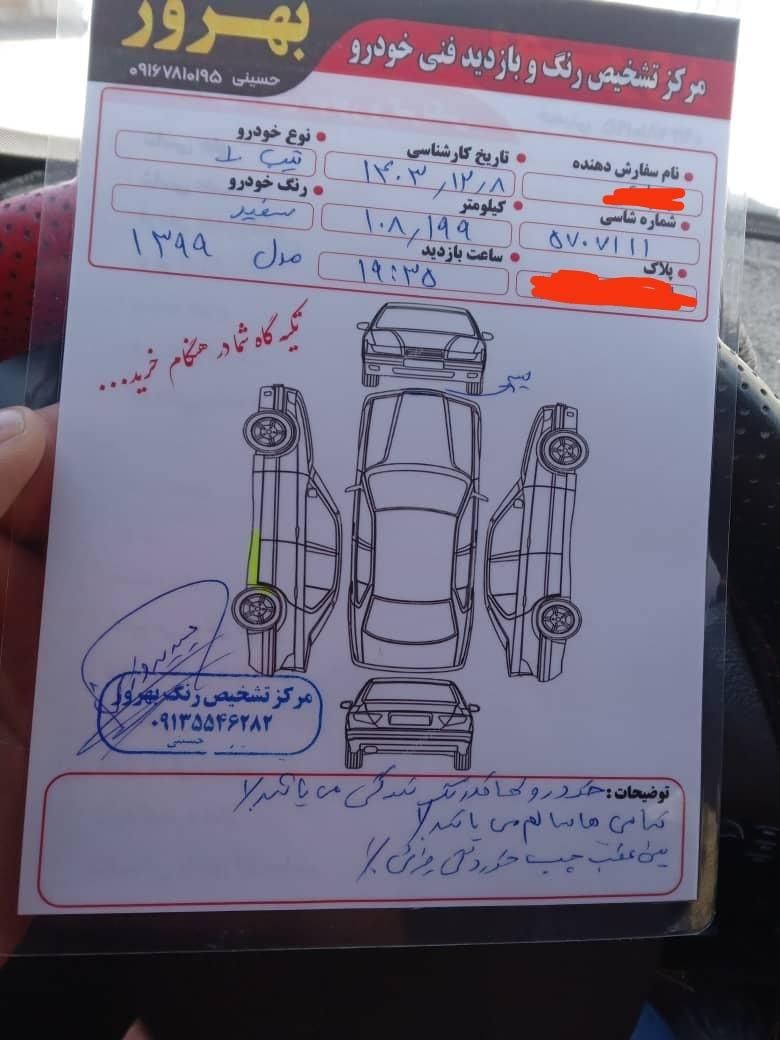 بهروز
مرکز تشخیص رنگ و بازدید فنی خودرو
حسینی ۰۹۱۶۷۸۱۰۱۹۵
نام سفارش دهنده
تاریخ کارشناسی ۱۴۰۳/۱۲/۸
نوع خودرو تیبا
شماره شاسی ۵۷۰۷۱۱۱
کیلومتر ۱۰۸/۱۹۹
رنگ خودرو سفید
پلاک
ساعت بازدید ۱۹:۳۵
مدل ۱۳۹۹
تکیه گاه شما در هنگام خرید...
مرکز تشخیص رنگ بهروز
۰۹۱۳۵۵۴۶۲۸۲
حسینی
توضیحات: خودرو فاقد رنگ شدگی می باشد
تمامی سالم می باشد
عقب چپ خوردگی جزئی